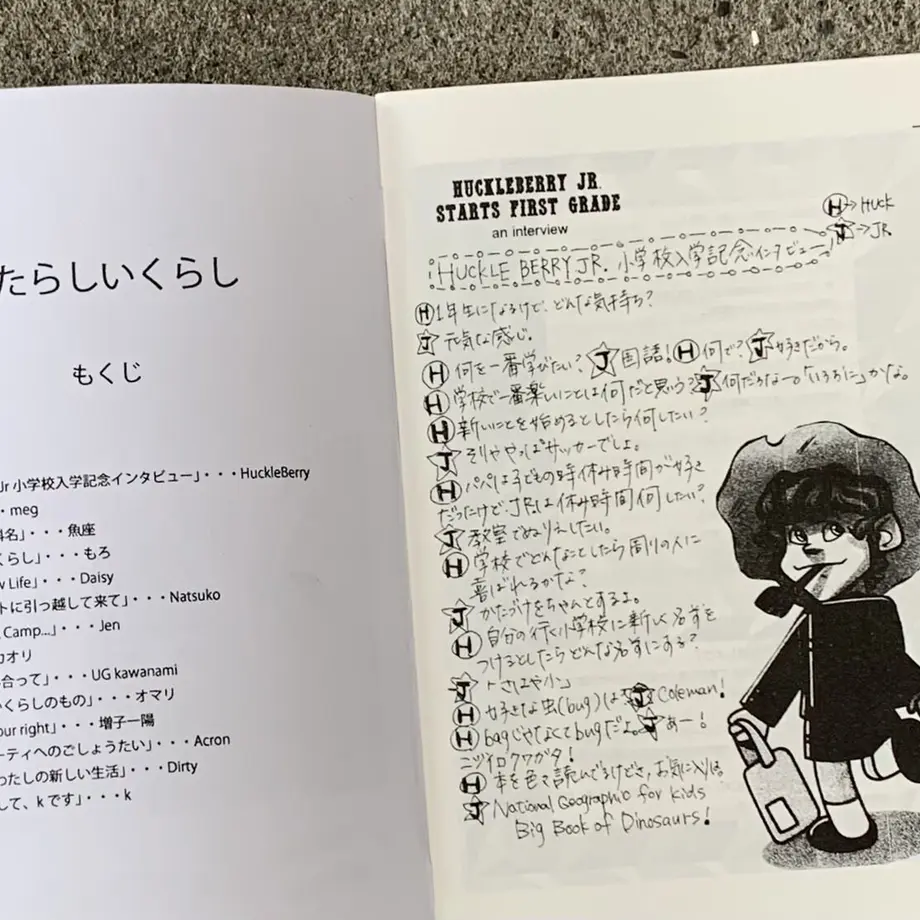 たらしいくらし
もくじ
Jr 小学校入学記念インタビュー」・・・HuckleBerry
・meg
名」・・・魚座
くらし」・・・もろ
w Life」・・・Daisy
トに引っ越して来て」・・・Natsuko
Camp...」・・・Jen
カオリ
合って」・・・UG kawanami
いくらしのもの」・・・オマリ
our right」・・・増子一陽
ーティへのごしょうたい」・・・Acron
わたしの新しい生活」・・・Dirty
して、k です」・・・k
HUCKLEBERRY JR.
STARTS FIRST GRADE
an interview
H→Huck
J→JR.
HUCKLE BERRY JR. 小学校入学記念インタビュー
H 1年生になるけど、どんな気持ち?
J 元気な感じ。
H 何を一番学びたい? J 国語! H 何で? J 好きだから。
H 学校で一番楽しいことは何だと思う? J 何だろなー。「いろおに」かな。
H 新しいことを始めるとしたら何したい?
J そりゃやっぱサッカーでしょ。
H パパは子どもの時休み時間が好き
だったけど、JRは休み時間何したい?
J 教室でぬりえしたい。
H 学校でどんなことしたら周りの人に
喜ばれるかな?
J かたづけをちゃんとするよ。
H 自分の行く小学校に新しく名前を
つけるとしたらどんな名前にする?
J トさはや小」
H 好きな虫(bug)は J Coleman!
H bagじゃなくてbugだよ。J あー!
ニジイロクワガタ!
H 本を色々読んでるけどさ、お気に入りは
J National Geographic for kids
Big Book of Dinosaurs!